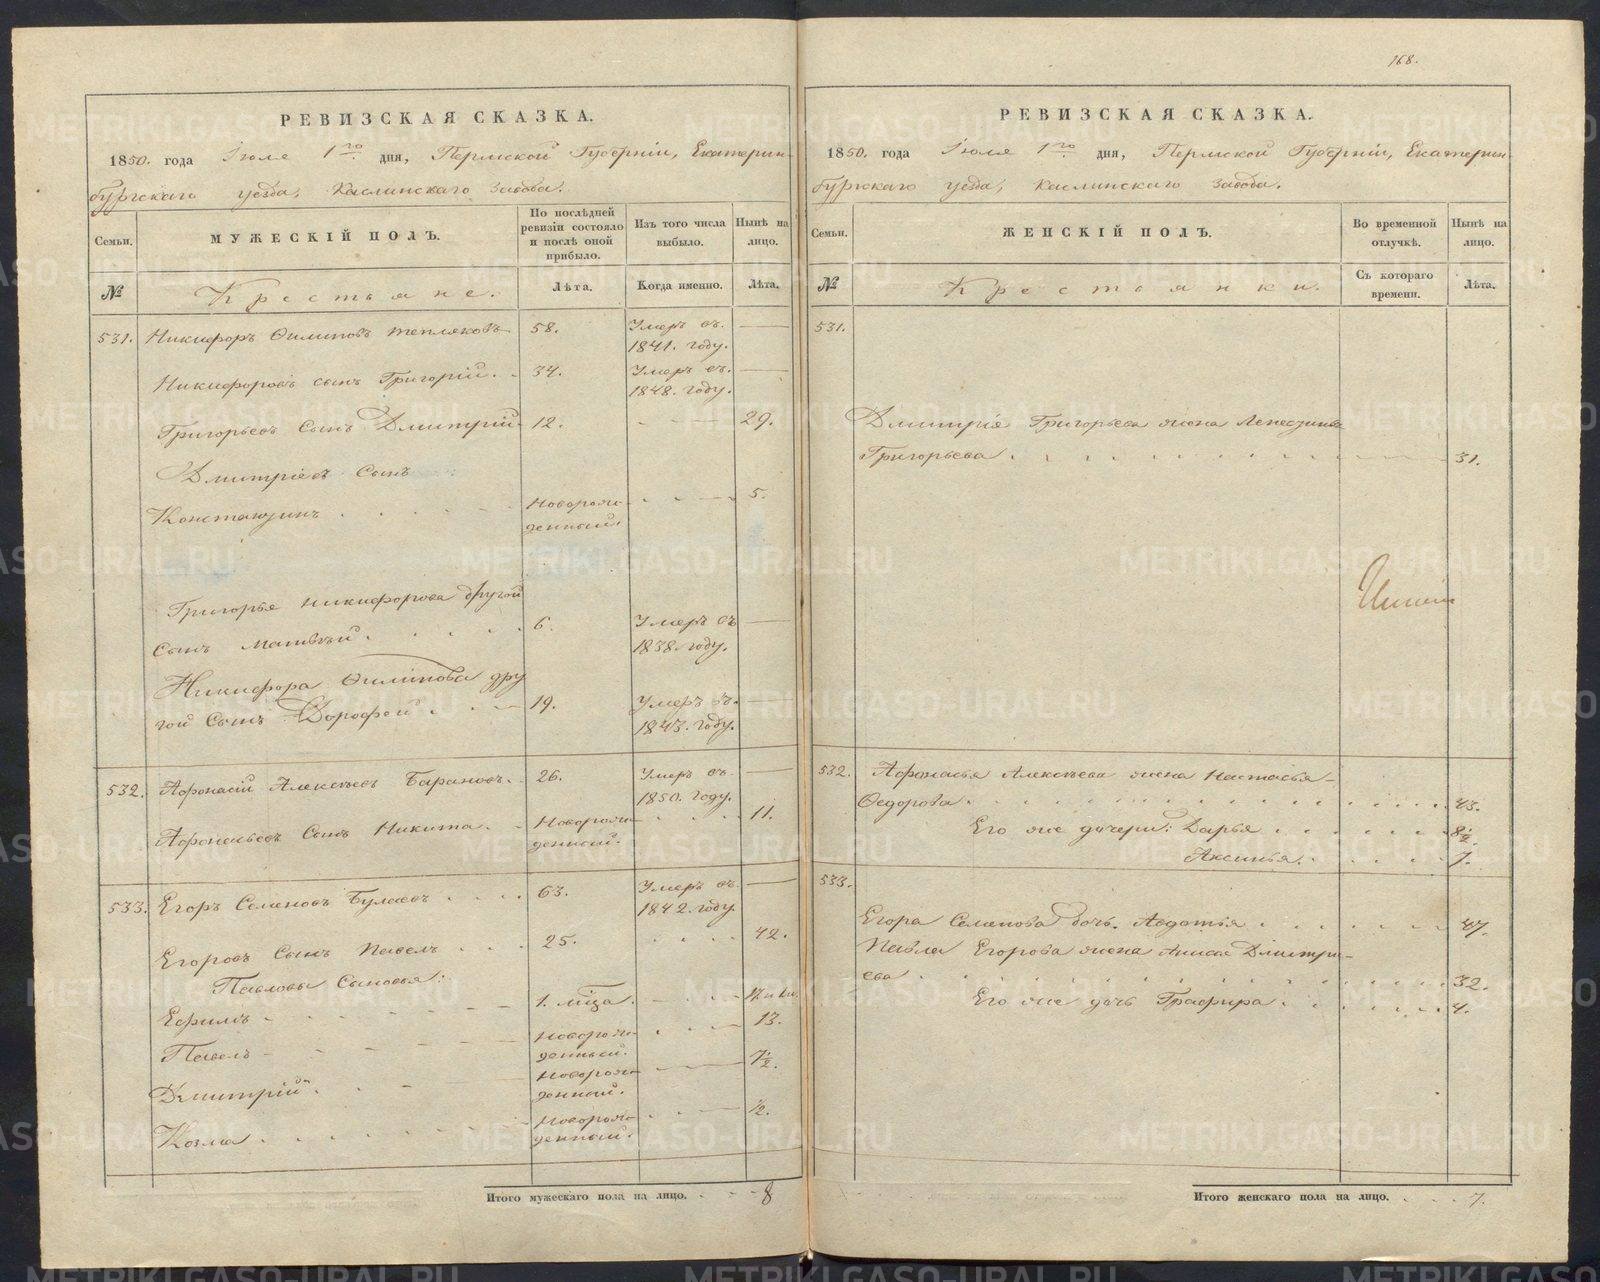 168.
РЕВИЗСКАЯ СКАЗКА.
1850. года Іюля 1го дня, Пермской Губерніи, Екатерин-
бургскаго уезда, Каслинскаго завода.
Семьи.
МУЖЕСКІЙ ПОЛЪ.
По послѣдней ревизіи состояло и послѣ оной прибыло.
Изъ того числа выбыло.
Нынѣ на лицо.
№
Крестьяне.
Лѣта.
Когда именно.
Лѣта.
531. Никифоръ Ѳилиповъ Тепляковъ 58. Умеръ въ —
1841. году.
Никифоровъ сынъ Григорій. 34. Умеръ въ. —
1848. году.
Григорьевъ Сынъ Дмитрій 12. 29.
Дмитріевъ Сынъ
Константинъ Новорож- 5.
денный.
Григорья Никифорова другой
Сынъ Матвѣй 6. Умеръ въ —
1838. году.
Никифора Ѳилипова дру
гой Сынъ Дорофей 19. Умеръ въ. —
1843. году.
532. Афонасій Алексѣевъ Барановъ. 26. Умеръ въ. —
1850. году.
Афонасьевъ Сынъ Никита. Новорож- 11.
денный.
533. Егоръ Семеновъ Булаевъ 63. Умеръ въ. —
1842. году.
Егоровъ Сынъ Павелъ 25. 42.
Павловы Сыновья:
Ефимъ 1. міца.
Павелъ Новорож- 13.
денный.
Дмитрій. Новорож- 7½.
денный.
Козма Новорож- ½.
денный.
Итого мужескаго пола на лицо. 8
РЕВИЗСКАЯ СКАЗКА.
1850. года Іюля 1го дня, Пермской Губерніи, Екатерин-
бургскаго уезда, Каслинскаго завода.
Семьи.
ЖЕНСКІЙ ПОЛЪ.
Во временной отлучкѣ.
Нынѣ на лицо.
№
Крестьянки.
Съ котораго времени.
Лѣта.
531.
Дмитрія Григорьева жена
Григорьева 31.
532. Афонасья Алексѣева жена Настасья
Ѳедорова 43.
Его же дочери: Дарья 8½.
Аксинья. 7.
533.
Егора Семенова дочь. Авдотья 47.
Павла Егорова жена Аниса Дмитрі-
ева 32.
Его же дочь Графира 4.
Итого женскаго пола на лицо. 7.
METRIKI.GASO-URAL.RU